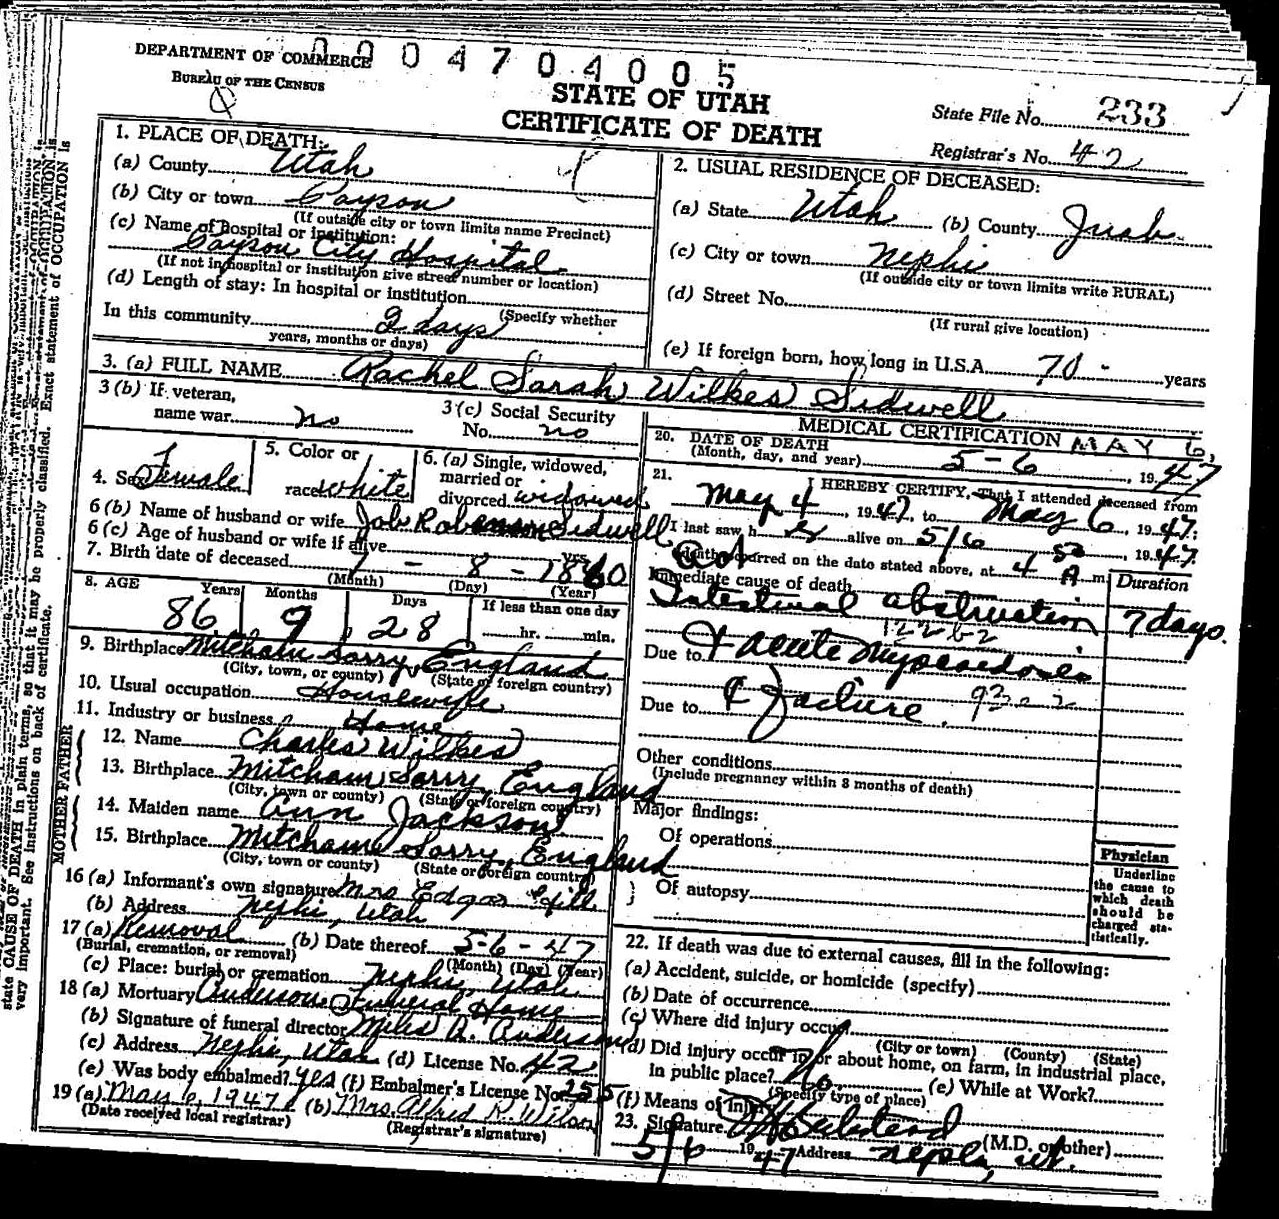 0004704005
DEPARTMENT OF COMMERCE
BUREAU OF THE CENSUS
STATE OF UTAH
CERTIFICATE OF DEATH
State File No. 233
Registrar's No. 42
1. PLACE OF DEATH:
(a) County Utah
(b) City or town Payson
(If outside city or town limits name Precinct)
(c) Name of hospital or institution:
Payson City Hospital
(If not in hospital or institution give street number or location)
(d) Length of stay: In hospital or institution
(Specify whether
In this community 2 days
years, months or days)
2. USUAL RESIDENCE OF DECEASED:
(a) State Utah (b) County Juab
(c) City or town Nephi
(If outside city or town limits write RURAL)
(d) Street No.
(If rural give location)
(e) If foreign born, how long in U.S.A. 70 - years
3. (a) FULL NAME Rachel Sarah Wilkes Sidwell
3 (b) If veteran,
name war no
3 (c) Social Security
No. no
4. Sex Female
5. Color or
race white
6. (a) Single, widowed,
married or
divorced widowed
6 (b) Name of husband or wife Job Robinson Sidwell
6 (c) Age of husband or wife if alive yrs.
7. Birth date of deceased 7 - 8 - 1860
(Month) (Day) (Year)
8. AGE Years Months Days If less than one day
86 9 28 hr. min.
9. Birthplace Mitcham Sorry, England
(City, town, or county) (State or foreign country)
10. Usual occupation Housewife
11. Industry or business Home
FATHER
12. Name Charles Wilkes
13. Birthplace Mitcham Sorry, England
(City, town or county) (State or foreign country)
MOTHER
14. Maiden name Ann Jackson
15. Birthplace Mitcham Sorry, England
(City, town or county) (State or foreign country)
16 (a) Informant's own signature Mrs Edgar Gill
(b) Address Nephi, Utah
17 (a) Removal (b) Date thereof 5-6-47
(Burial, cremation, or removal) (Month) (Day) (Year)
(c) Place: burial or cremation Nephi, Utah
18 (a) Mortuary Anderson Funeral Home
(b) Signature of funeral director Miles A. Anderson
(c) Address Nephi, Utah (d) License No. 42
(e) Was body embalmed? yes (f) Embalmer's License No. 255
19 (a) May 6, 1947 (b) Mrs. Alfred R. Wilson
(Date received local registrar) (Registrar's signature)
MEDICAL CERTIFICATION MAY 6,
20. DATE OF DEATH
(Month, day, and year) 5-6, 1947
21. I HEREBY CERTIFY, That I attended deceased from
May 4, 1947, to May 6, 1947;
I last saw her alive on 5/6, 1947.
Death occurred on the date stated above, at 4 50 A m.
Immediate cause of death
Duration
Intestinal obstruction 7 days.
122b2
Due to & acute myocardial
Due to failure. 93
Other conditions
(Include pregnancy within 3 months of death)
Major findings:
Of operations
Of autopsy
Physician
Underline
the cause to
which death
should be
charged sta-
tistically.
22. If death was due to external causes, fill in the following:
(a) Accident, suicide, or homicide (specify)
(b) Date of occurrence
(c) Where did injury occur
(City or town) (County) (State)
(d) Did injury occur in or about home, on farm, in industrial place,
in public place? No. (e) While at Work?
(Specify type of place)
(f) Means of injury
23. Signature (M.D. or other)
5/6 1947 Address Nephi, Ut.
state CAUSE OF DEATH in plain terms, so that it may be properly classified. Exact statement of OCCUPATION is
very important. See instructions on back of certificate.